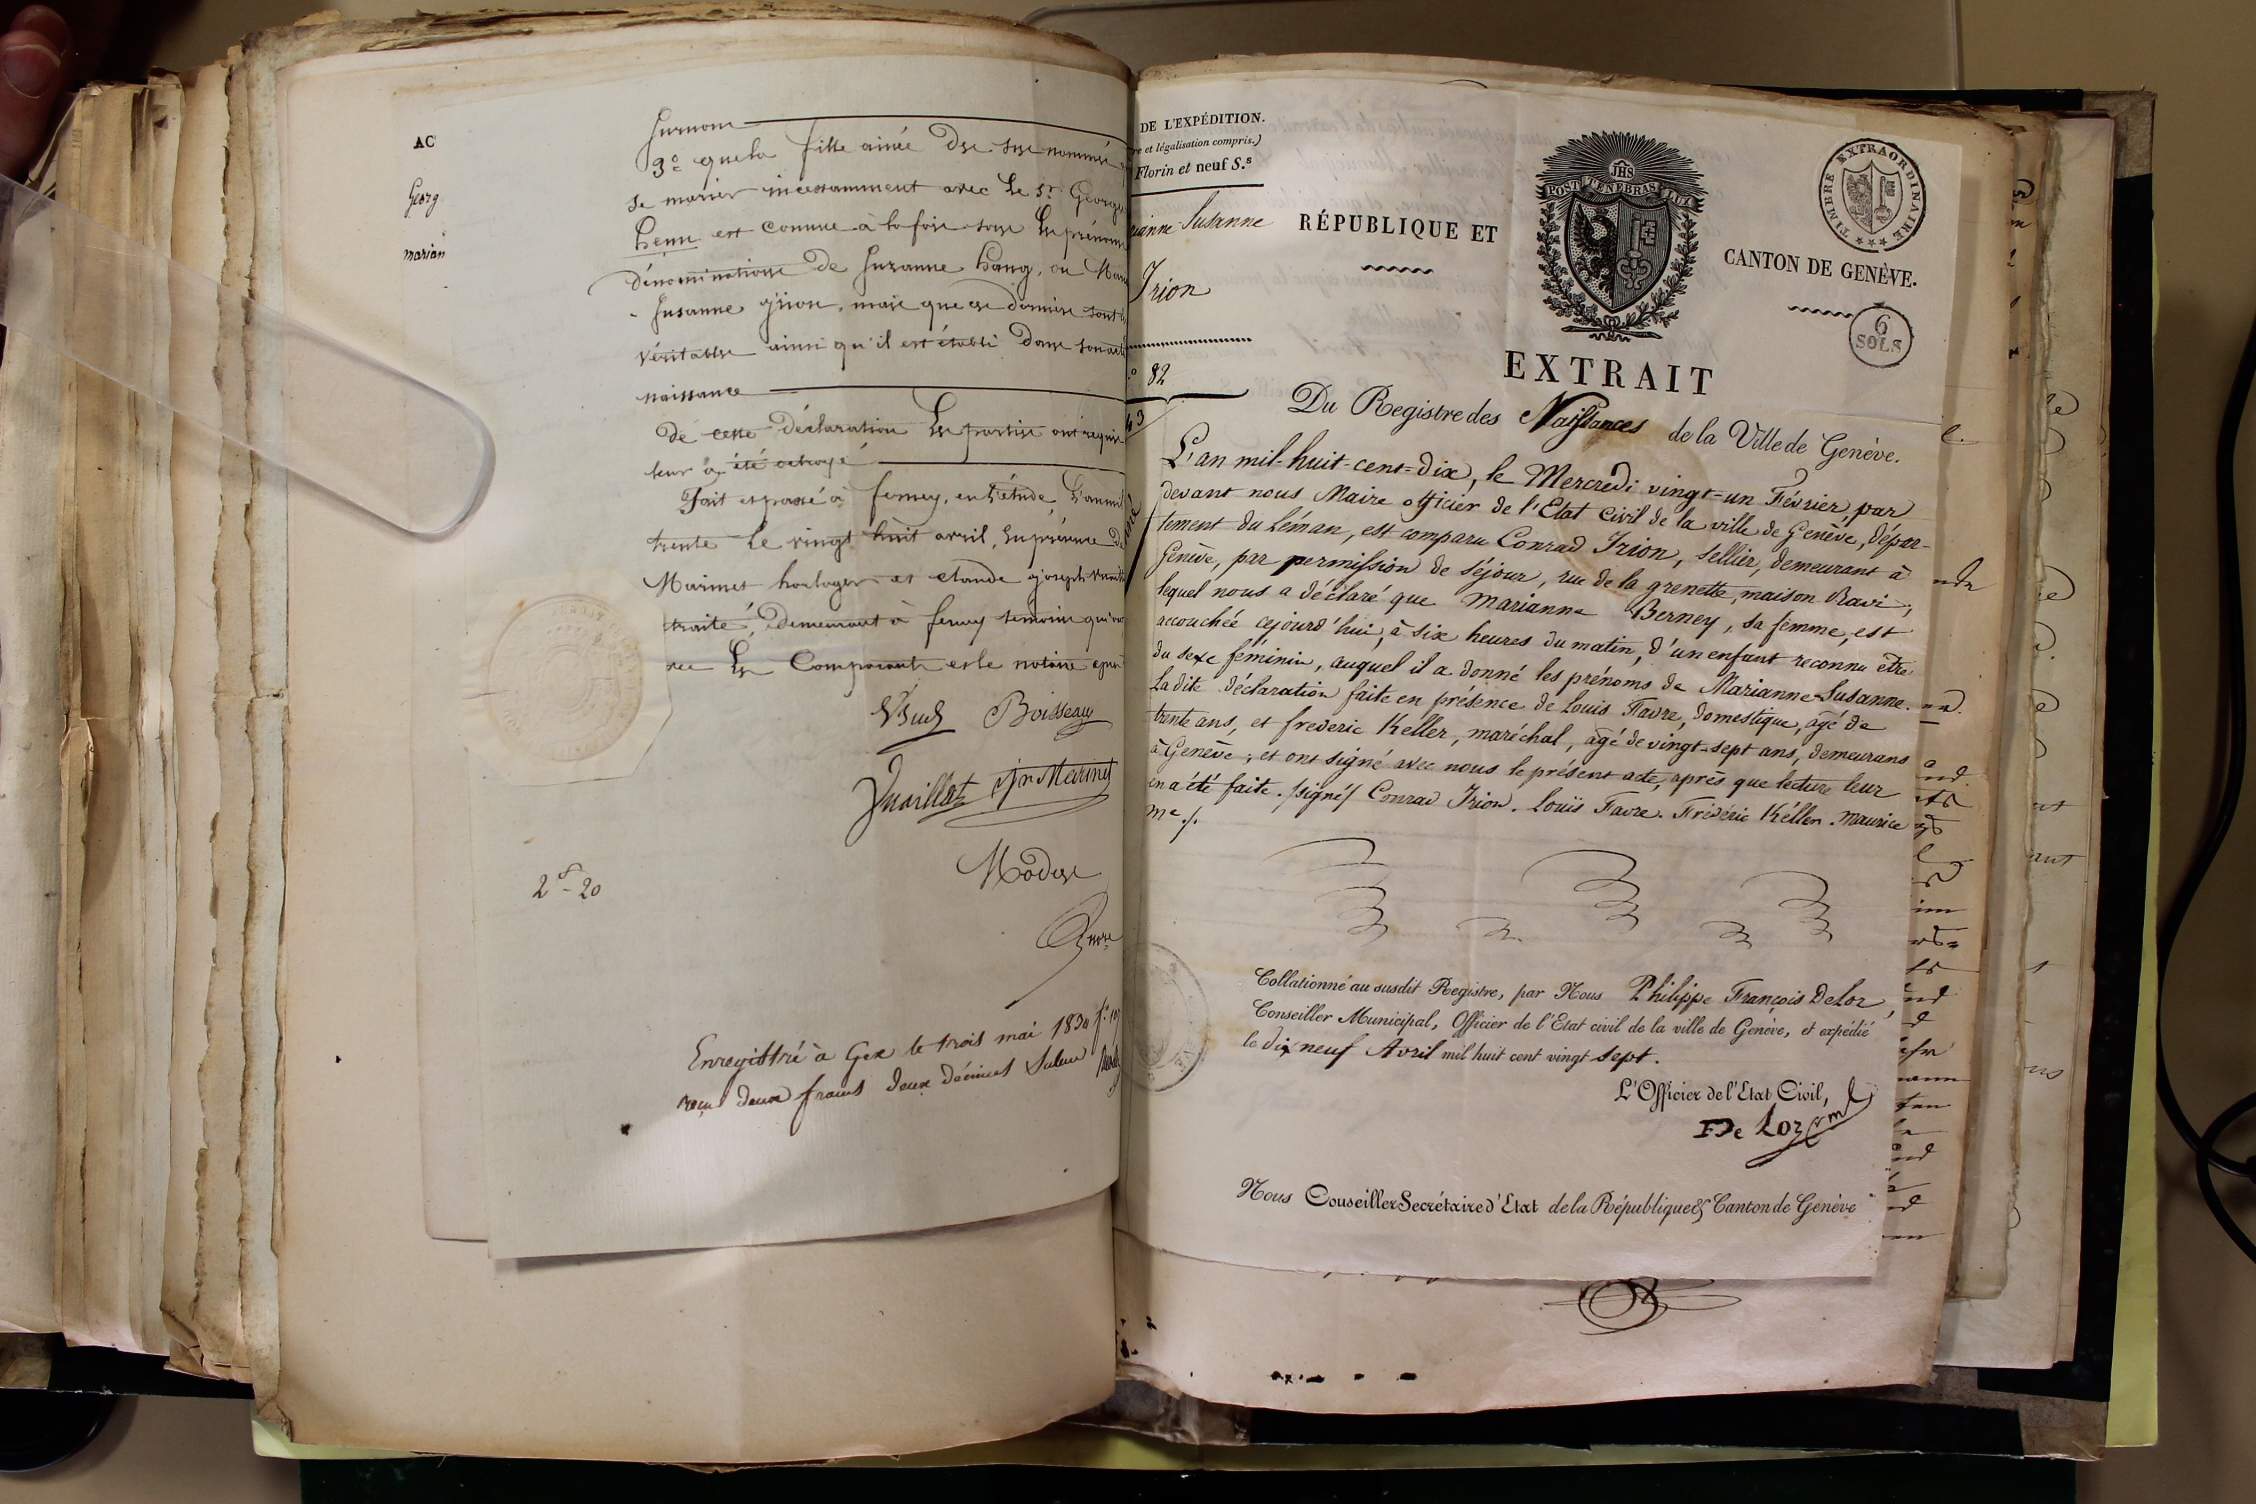 AC
Georg
marian
surnom
3º que la fille ainée des sus nommés
se marier incessamment avec le Sr George
henn est connue à la fois sous les prénoms
dénominations de Suzanne hang, ou Mari
Susanne yrion, mais que ces derniers sont
véritables ainsi qu'il est établi dans son acte
naissance
De cette déclaration les parties ont requis
leur a été octroyé
Fait et passé à ferney, en l'étude, L'an mil
trente le vingt huit avril, en présence de
Marinet horloger et claude joseph
traité, demeurant à ferney témoins qui ont
les Comparants et le notaire après
Boisseau
Jn Marinet
2f-20
Enregistré à Gex le trois mai 1830 fº
reçu deux francs deux décimes
DE L'EXPÉDITION.
re et légalisation compris.)
Florin et neuf S.s
rianne Susanne
Irion
º 82
RÉPUBLIQUE ET
JHS
POST TENEBRAS LUX
CANTON DE GENÈVE.
TIMBRE EXTRAORDINAIRE
6
SOLS
EXTRAIT
Du Registre des Naissances de la Ville de Genève.
L'an mil-huit-cent-dix, le Mercredi vingt-un Février, par
devant nous Maire officier de l'Etat Civil de la ville de Genève, dépar-
tement du Léman, est comparu Conrad Irion, Sellier, demeurant à
Genève, par permission de séjour, rue de la grenette, maison Ravi,
lequel nous a déclaré que Marianne Berney, sa femme, est
accouchée cejourd'hui, à six heures du matin, d'un enfant reconnu être
du sexe féminin, auquel il a donné les prénoms de Marianne-Susanne.
Ladite déclaration faite en présence de Louis Favre, domestique, âgé de
trente ans, et frederic Keller, maréchal, âgé de vingt-sept ans, demeurans
à Genève; et ont signé avec nous le présent acte, après que lecture leur
en a été faite. /signé/ Conrad Irion. Louïs Favre. Frédéric Kéller. Maurice
Me./.
Collationné au susdit Registre, par Nous Philippe François DeLor,
Conseiller Municipal, Officier de l'Etat civil de la ville de Genève, et expédié
le dix neuf Avril mil huit cent vingt sept.
L'Officier de l'Etat Civil,
De Lor
Nous Conseiller Secrétaire d'Etat de la République & Canton de Genève